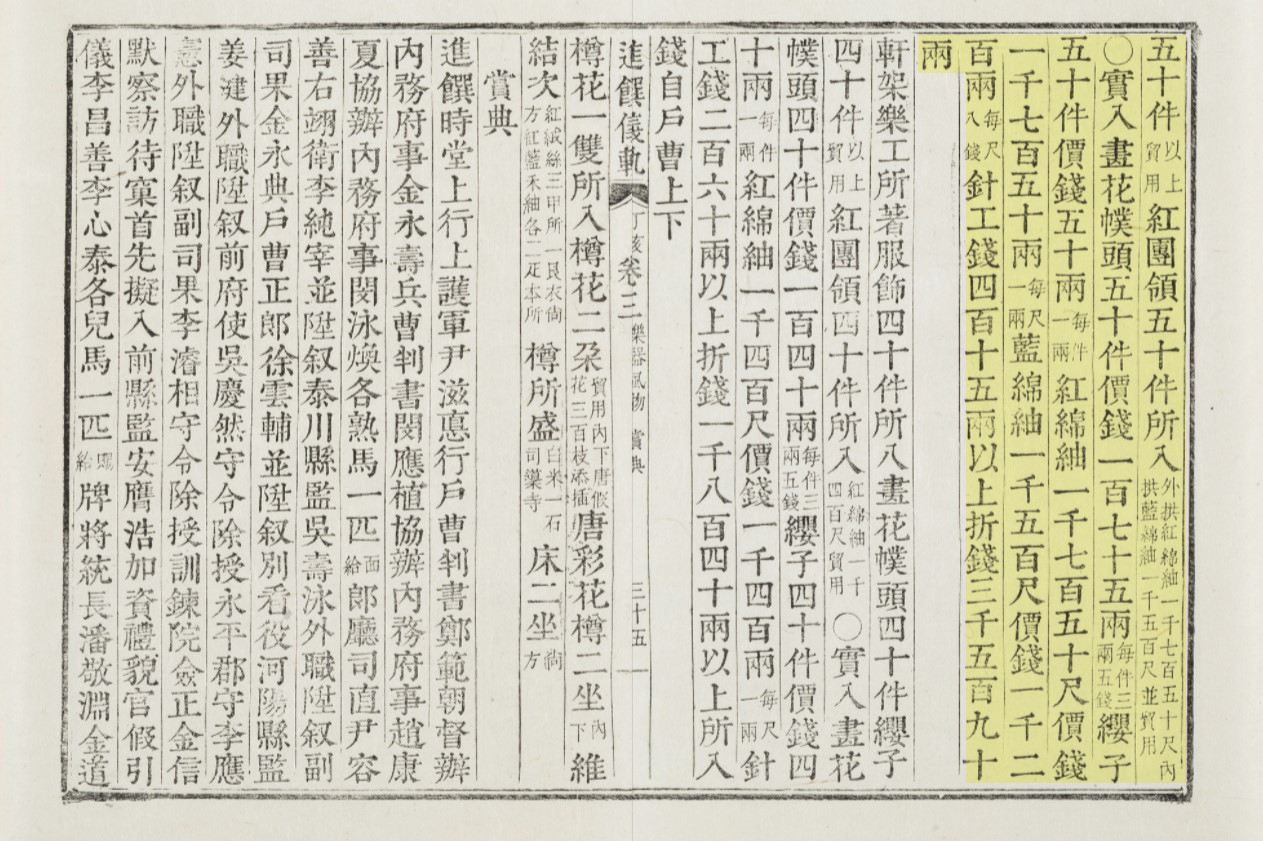 五十件以上貿用紅團領五十件所入外拱紅綿紬一千七百五十尺內拱藍綿紬一千五百尺並貿用
〇實入畫花幞頭五十件價錢一百七十五兩每件三兩五錢纓子
五十件價錢五十兩每件一兩紅綿紬一千七百五十尺價錢
一千七百五十兩每尺一兩藍綿紬一千五百尺價錢一千二
百兩每尺八錢針工錢四百十五兩以上折錢三千五百九十
兩
軒架樂工所著服飾四十件所入畫花幞頭四十件纓子
四十件以上貿用紅團領四十件所入紅綿紬一千四百尺貿用〇實入畫花
幞頭四十件價錢一百四十兩每件三兩五錢纓子四十件價錢四
十兩每件一兩紅綿紬一千四百尺價錢一千四百兩每尺一兩針
工錢二百六十兩以上折錢一千八百四十兩以上所入
錢自戶曹上下
進饌儀軌 丁亥 卷三 樂器風物 賞典 三十五
樽花一雙所入樽花二朶貿用內下唐假花三百枝添插唐彩花樽二坐內下維
結次紅絨絲三甲所一艮衣徜方紅藍禾紬各二疋本所樽所盛白米一石司䆃寺床二坐徜方
賞典
進饌時堂上行上護軍尹滋悳行戶曹判書鄭範朝督辦
內務府事金永壽兵曹判書閔應植協辦內務府事趙康
夏協辦內務府事閔泳煥各熟馬一匹面給郞廳司直尹容
善右翊衛李純宰並陞叙泰川縣監吳壽泳外職陞叙副
司果金永典戶曹正郎徐雲輔並陞叙別看役河陽縣監
姜湕外職陞叙前府使吳慶然守令除授永平郡守李應
憲外職陞叙副司果李濬相守令除授訓鍊院僉正金信
默察訪待窠首先擬入前縣監安膺浩加資禮貌官假引
儀李昌善李心泰各兒馬一匹賜給牌將統長潘敬淵金道